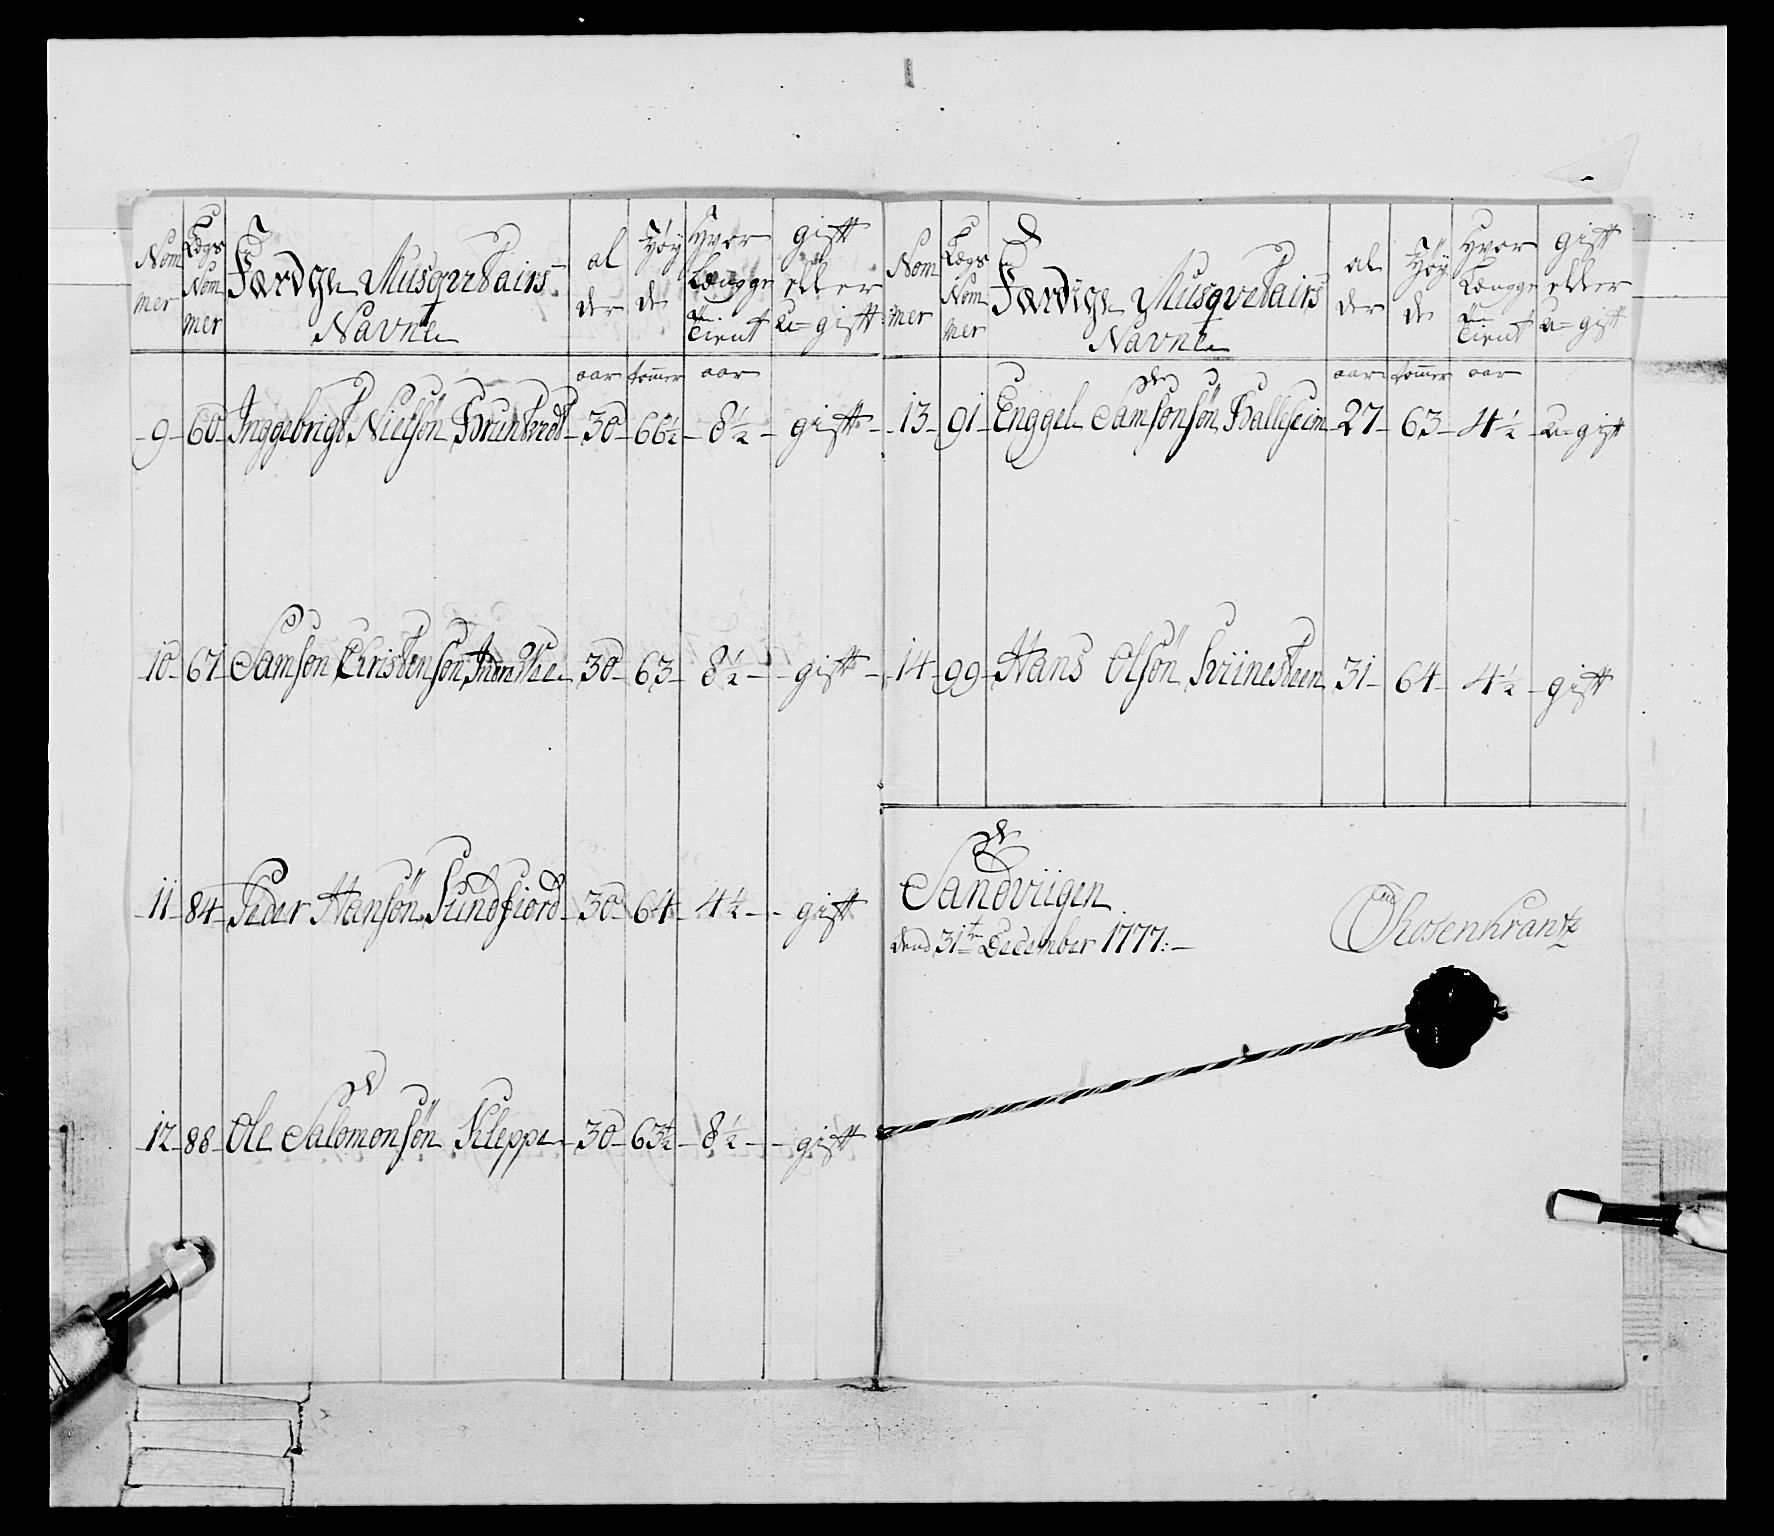 Nom mer | Lægs Nom mer | Færdige Musqvetairs Navne | al der | Høy de | Hvor Længge Tient | gift eller u=gift
aar | tommer | aar
9 | 60 | Inggebrigt Nielsøn | 30 | 66½ | 8½ | gift
10 | 67 | Samson Christensøn | 30 | 63 | 8½ | gift
11 | 84 | Peder Hansøn Sundfiord | 30 | 64 | 4½ | gift
12 | 88 | Ole Salomonsøn Kleppe | 30 | 63½ | 8½ | gift
Nom mer | Lægs Nom mer | Færdige Musqvetairs Navne | al der | Høy de | Hvor Længge Tient | gift eller u=gift
aar | tommer | aar
13 | 91 | Enggel Samsonsøn | 27 | 63 | 4½ | u=gift
14 | 99 | Hans Olsøn Sviinesteen | 31 | 64 | 4½ | gift
Sandviigen
dend 31te December 1777:
Rosenkrantz